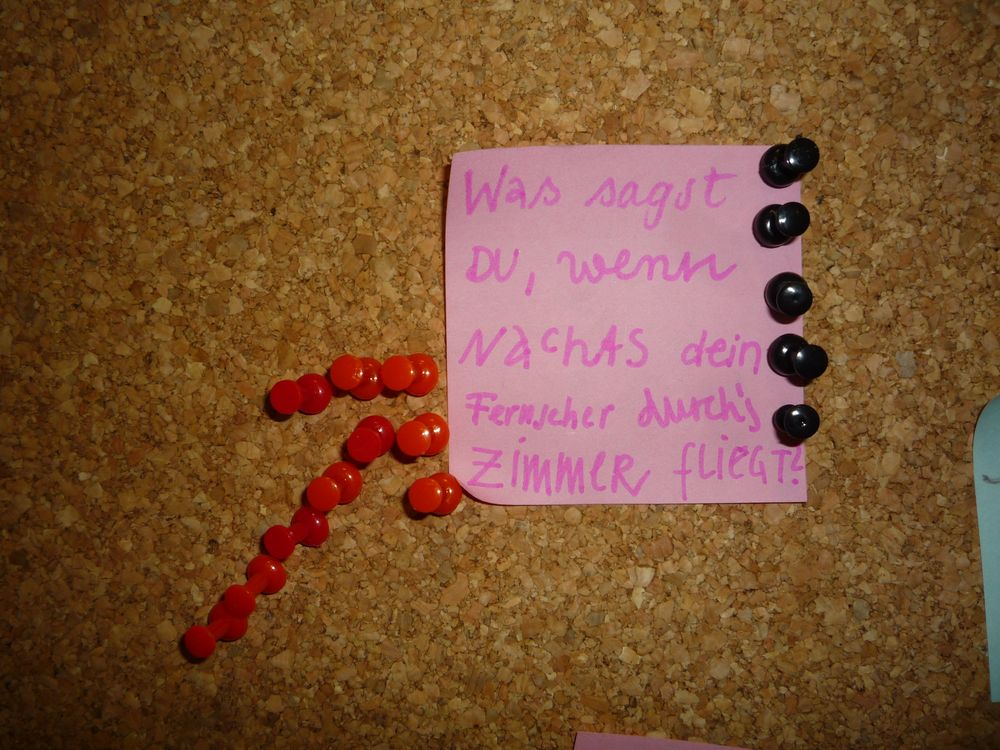 Was sagst
DU, wenn
NachAS dein
Fernseher durch's
ZimmER fLiEGT?